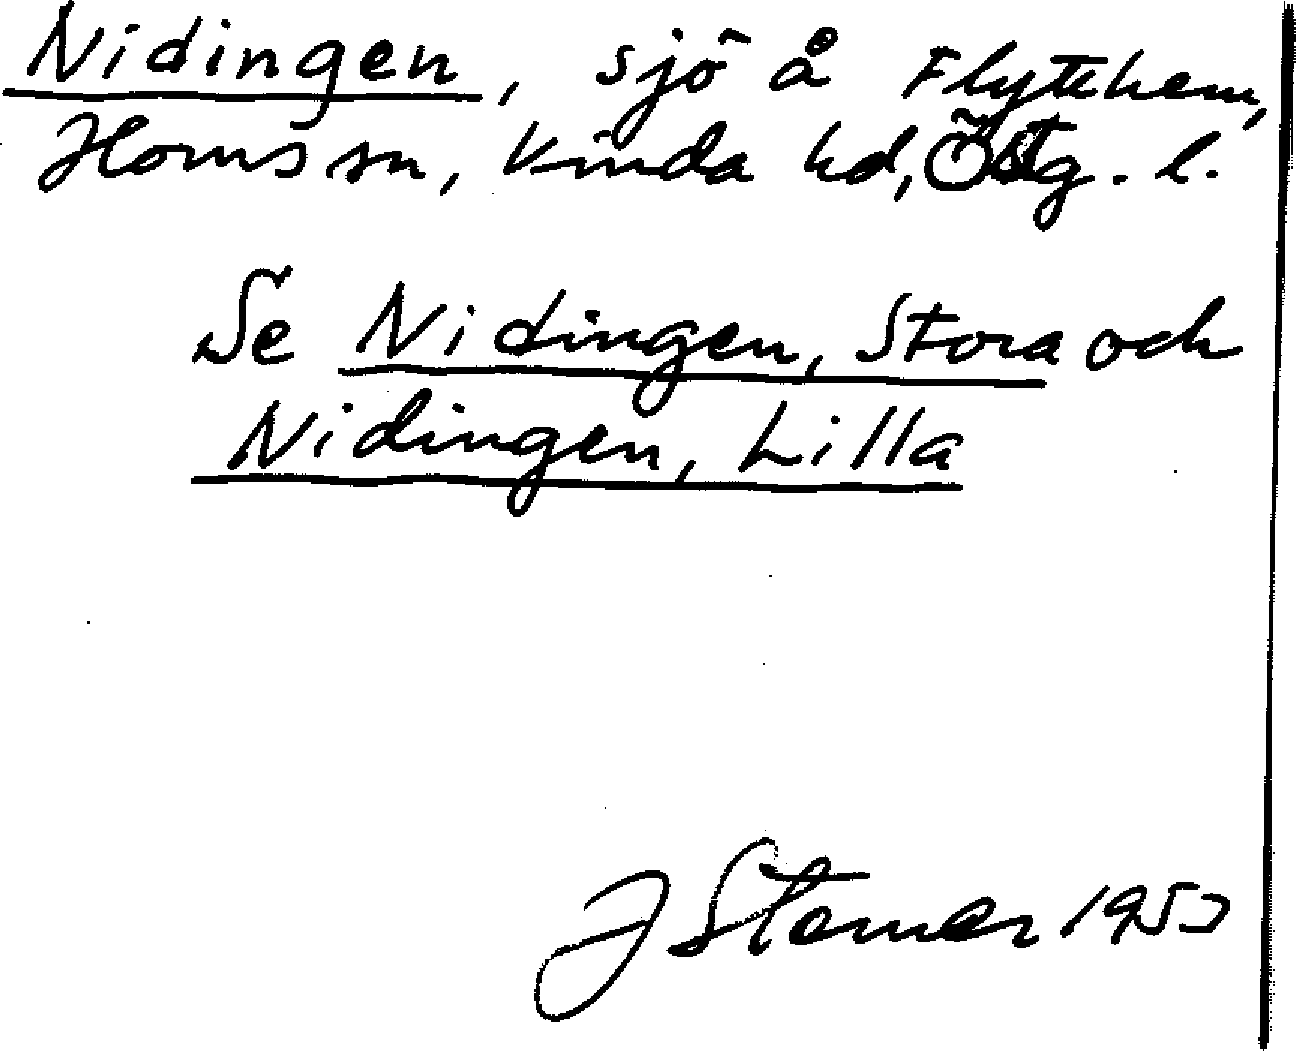 Nidingen, sjö å Flytthem,
Horns sn, Kinda hd, Östg. l.
Se Nidingen, Stora och
Nidingen, Lilla
J 1953